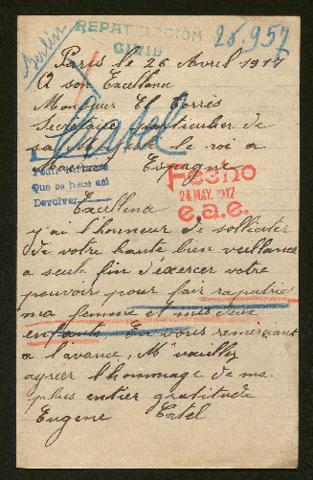 REPATRIACIÓN
CIVIL
Berlin
26.957
Paris le 26 Avril 1917
A son Excellena
Monsieur El Torrès
Secrétaire particulier de
sa Majesté le roi a
Madrid Espagne
Catel
Que se hace así
Devolver
Fecho
24 MAY. 1917
e.a.e.
Excellena
j'ai l'honneur de solliciter
de votre haute bien veillance
a seule fin d'éxercer votre
pouvoir pour fair rapatrier
ma femme et mes deux
enfants. En vous remerciant
a l'avance, Mr veuillez
agreer l'hommage de ma
plus entier gratitude
Eugene Catel